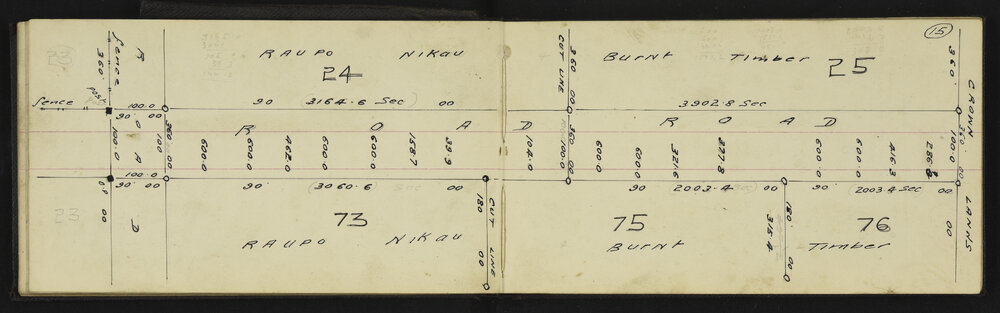 15
RAUPO NIKAU
24
BURNT TIMBER
25
R
fence
360
post
CUT LINE
360 00
360
CROWN
fence
100.0
90 00
90 3164.6 Sec 00
3902.8 Sec
R O A D
R O A D
R O A D
100.0
100
360 00
600.0
600.0
462.0
600.0
600.0
158.7
39.9
104.0
100.0
360 00
600.0
600.0
321.6
277.8
600.0
600.0
416.3
286.8
100.0
360 00
100.0
90 00
90 3060.6 Sec 00
90 2003.4 Sec 00
2003.4 Sec 00
00
23
73
75
76
RAUPO NIKAU
BURNT TIMBER
CUT LINE
180 00
180 00.0
315.4
LANDS